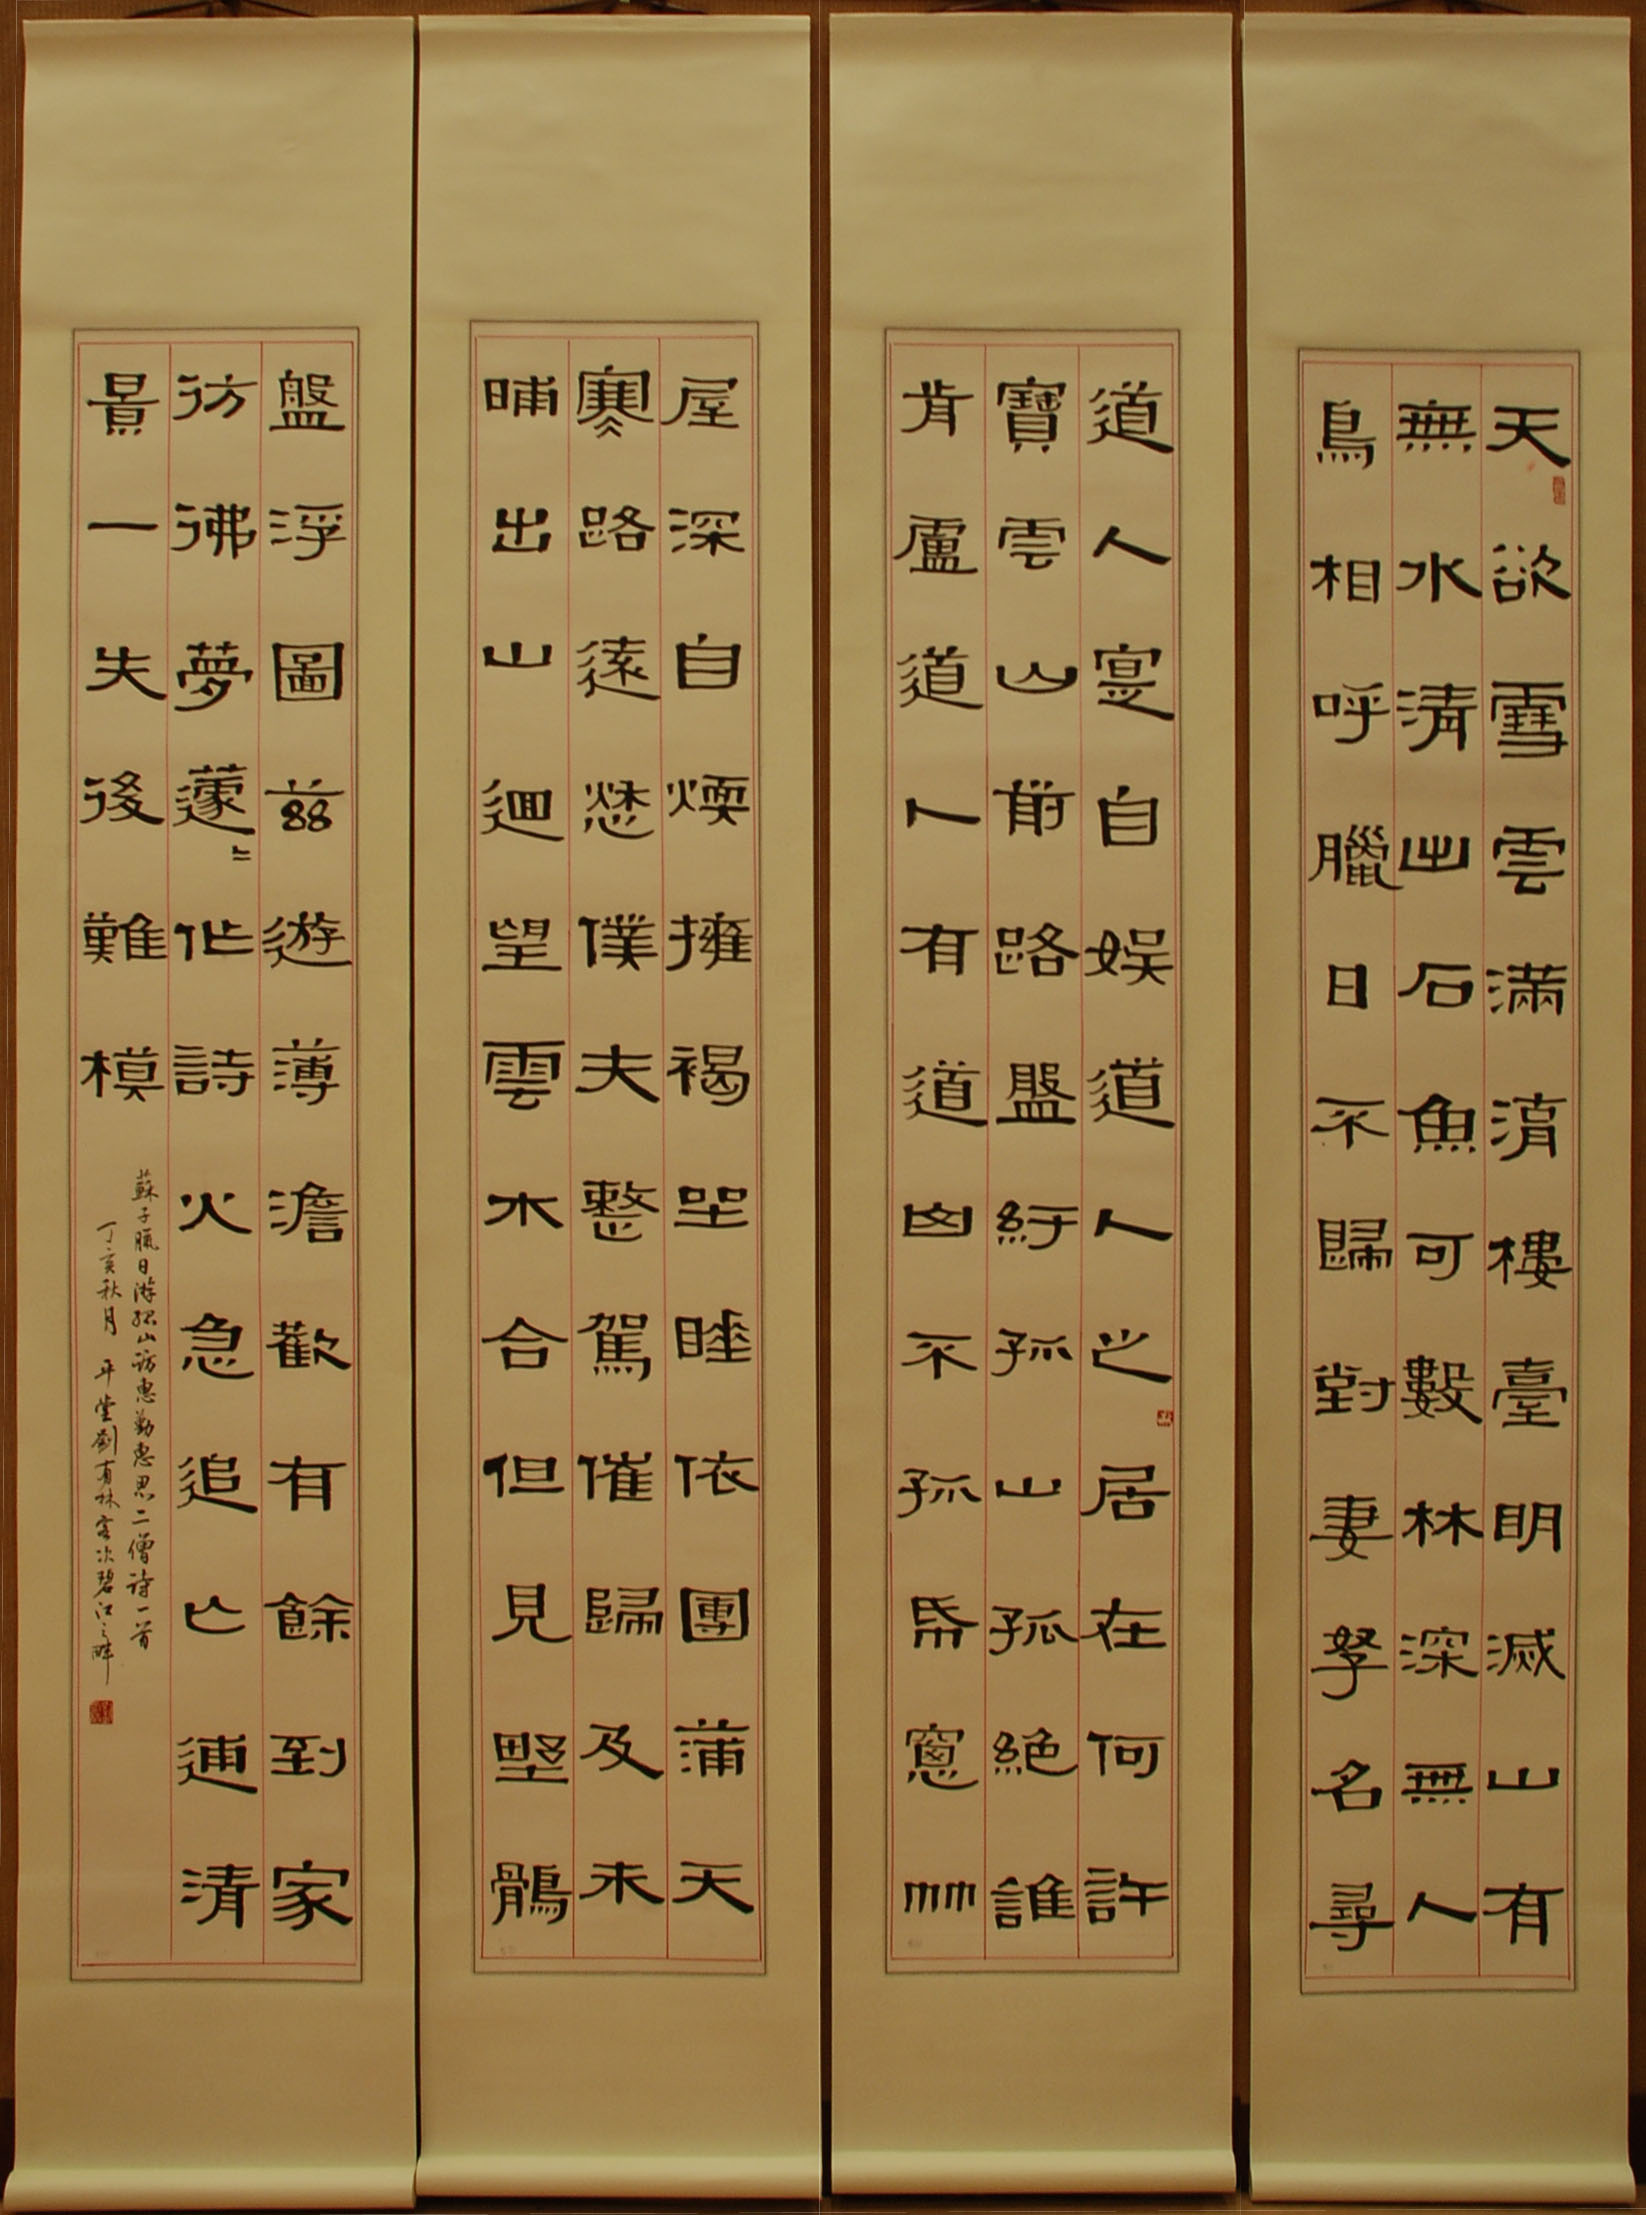 天欲雪雲滿湖樓臺明滅山有
無水清出石魚可數林深無人
鳥相呼臘日不歸對妻孥名尋
道人寔自娛道人之居在何許
寶雲山前路盤紆孤山孤絕誰
肯盧道人有道山不孤帋窻竹
屋深自煗擁褐坐睡依團蒲天
寒路遠愁僕夫整駕催歸及未
晡出山迴望雲木合但見野鶻
盤浮圖茲遊薄澹歡有餘到家
彷彿夢蘧〻作詩火急追亡逋清
景一失後難模
蘇子臘日游孤山訪惠勤惠思二僧诗一首
丁亥秋月 平堂劉有林客次碧江之畔